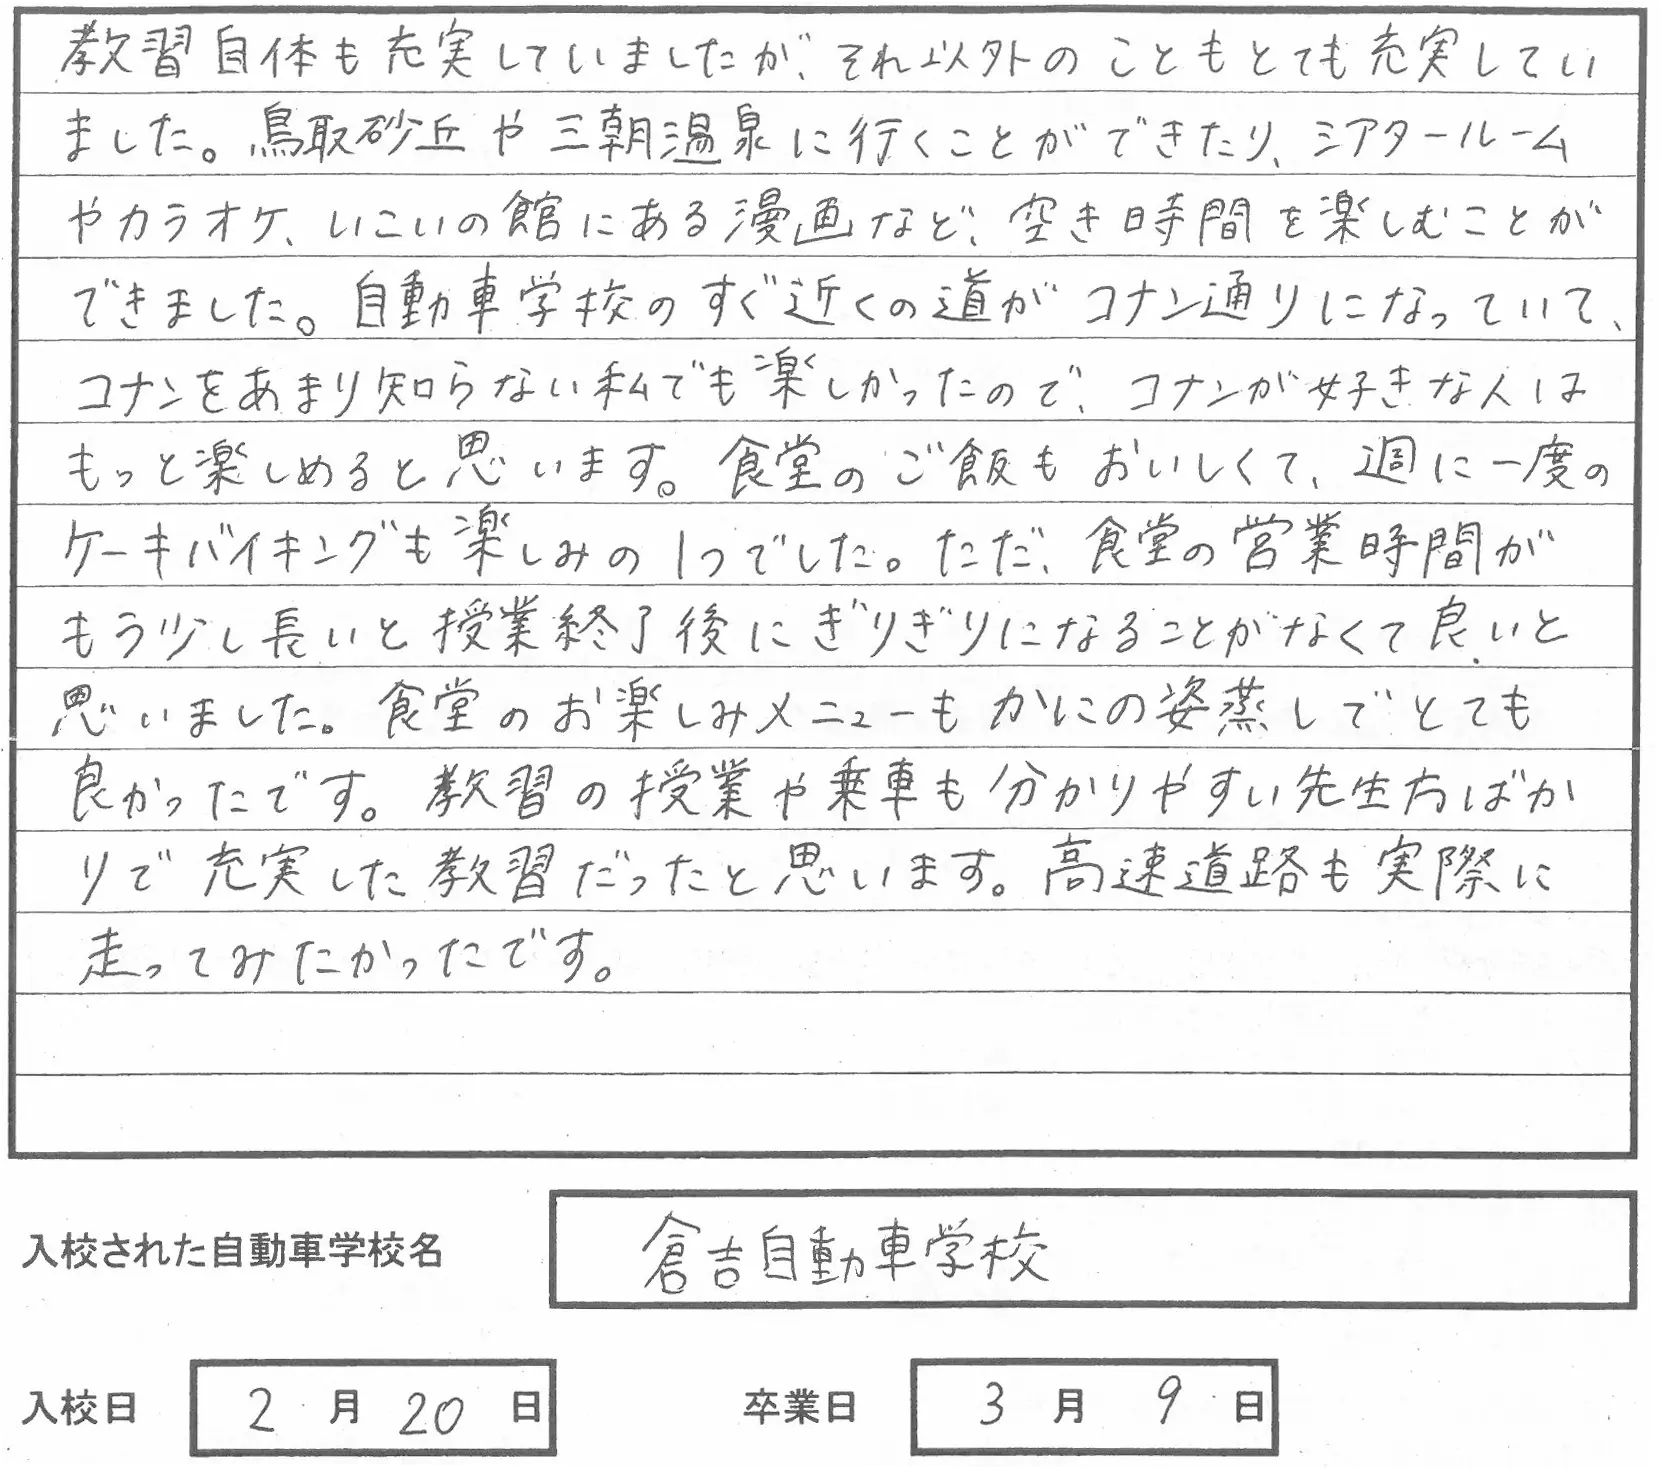 教習自体も充実していましたが、それ以外のこともとても充実してい
ました。鳥取砂丘や三朝温泉に行くことができたり、シアタールーム
やカラオケ、いこいの館にある漫画など、空き時間を楽しむことが
できました。自動車学校のすぐ近くの道がコナン通りになっていて、
コナンをあまり知らない私でも楽しかったので、コナンが好きな人は
もっと楽しめると思います。食堂のご飯もおいしくて、週に一度の
ケーキバイキングも楽しみの1つでした。ただ、食堂の営業時間が
もう少し長いと授業終了後にぎりぎりになることがなくて良いと
思いました。食堂のお楽しみメニューもかにの姿蒸しでとても
良かったです。教習の授業や乗車も分かりやすい先生方ばか
りで充実した教習だったと思います。高速道路も実際に
走ってみたかったです。
入校された自動車学校名 倉吉自動車学校
入校日 2月20日 卒業日 3月9日